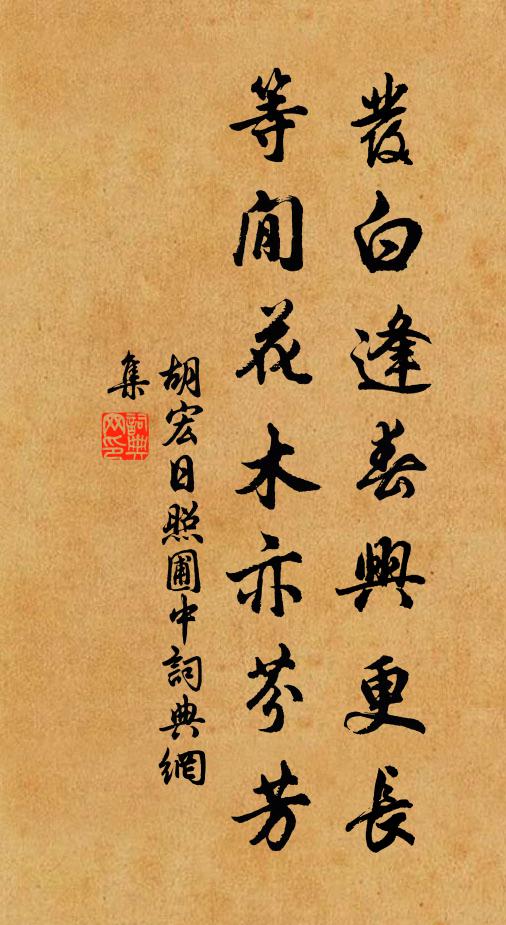 發白逢春興更長
等閒花木亦芬芳
胡宏日照圃中詞典網
集
詞典
网印